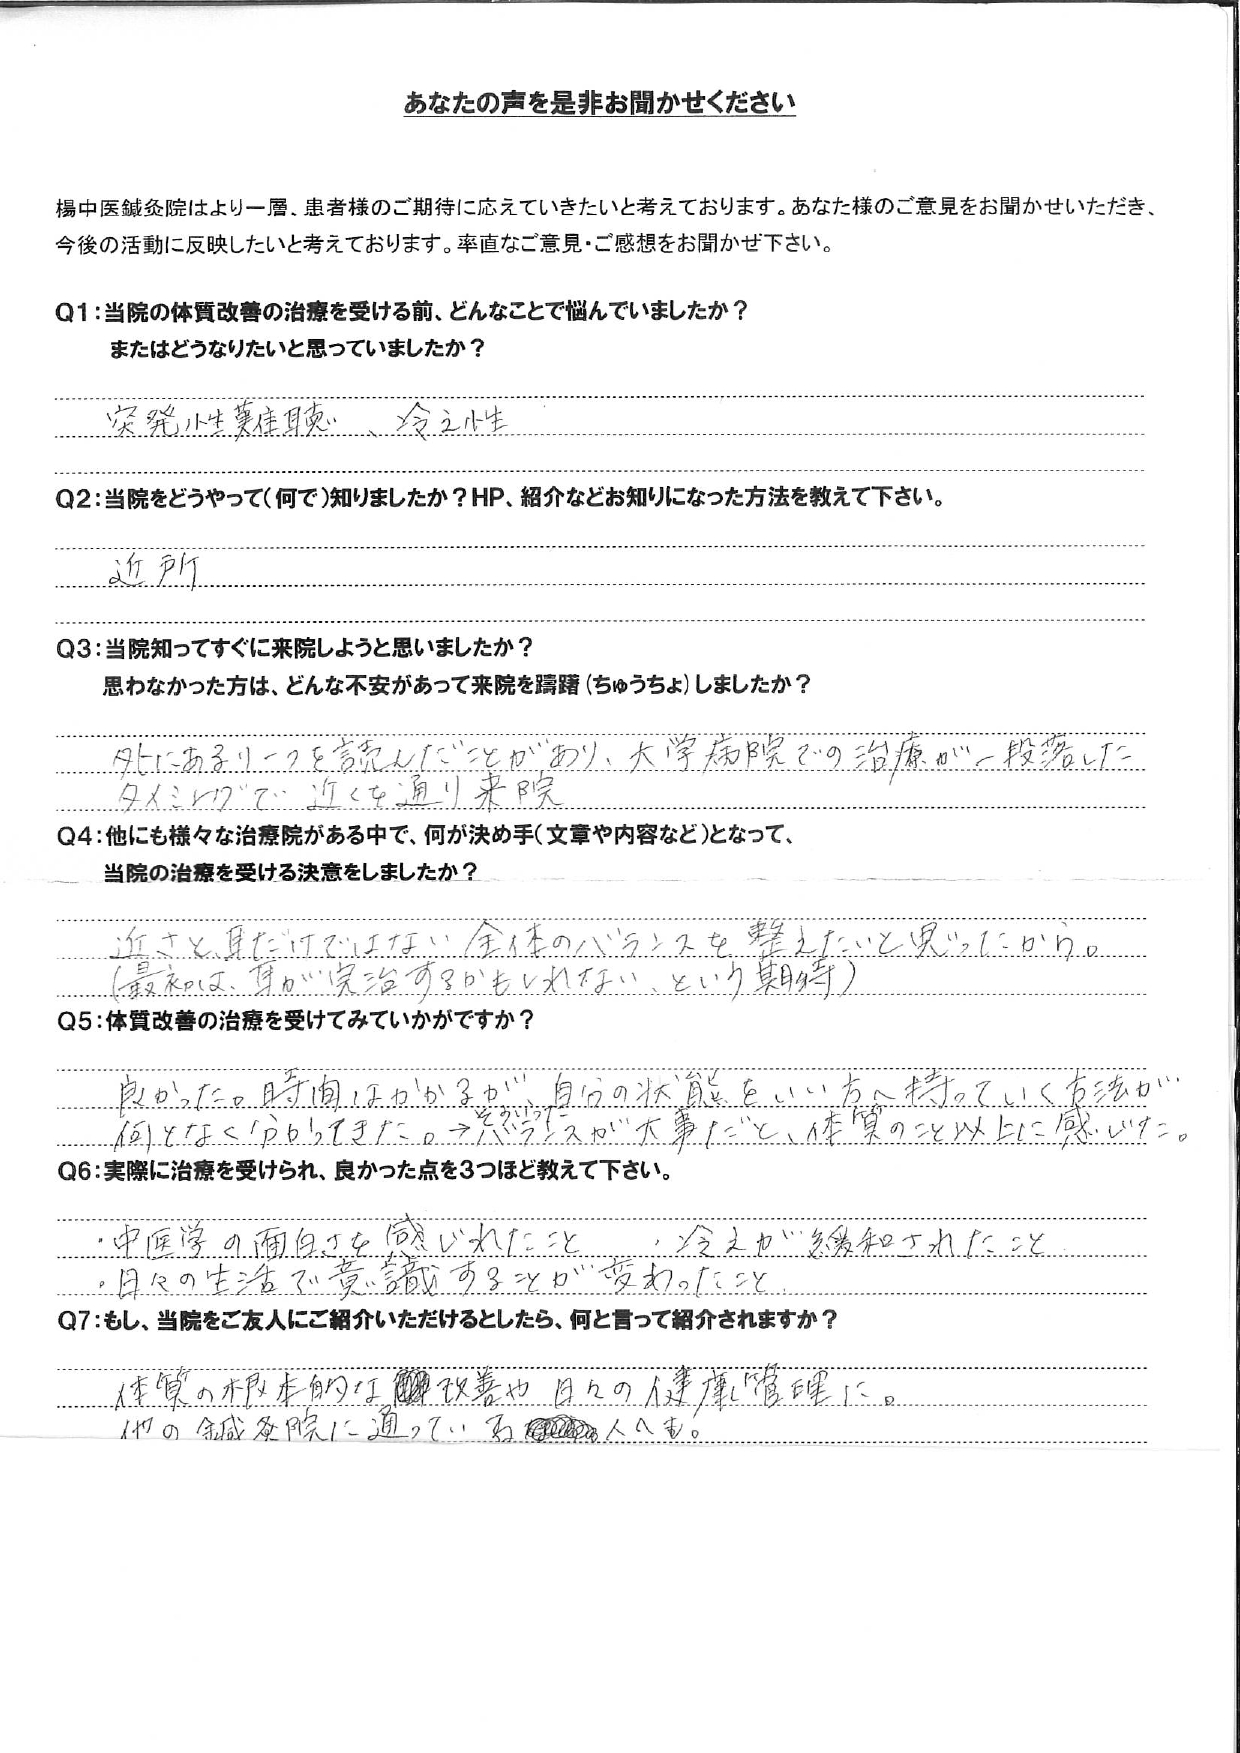 あなたの声を是非お聞かせください
楊中医鍼灸院はより一層、患者様のご期待に応えていきたいと考えております。あなた様のご意見をお聞かせいただき、
今後の活動に反映したいと考えております。率直なご意見・ご感想をお聞かせ下さい。
Q1:当院の体質改善の治療を受ける前、どんなことで悩んでいましたか？
またはどうなりたいと思っていましたか？
突発性難聴、冷え性
Q2:当院をどうやって(何で)知りましたか？HP、紹介などお知りになった方法を教えて下さい。
近所
Q3:当院知ってすぐに来院しようと思いましたか？
思わなかった方は、どんな不安があって来院を躊躇(ちゅうちょ)しましたか？
外にあるリーフを読んだことがあり、大学病院での治療が一段落した
タイミングで近くを通り来院
Q4:他にも様々な治療院がある中で、何が決め手(文章や内容など)となって、
当院の治療を受ける決意をしましたか？
近さと、耳だけではない全体のバランスを整えたいと思ったから。
(最初は、耳が完治するかもしれない、という期待)
Q5:体質改善の治療を受けてみていかがですか？
良かった。時間はかかるが、自分の状態をいい方へ持っていく方法が
何となく分かってきた。→そういったバランスが大事だと、体質のこと以上に感じた。
Q6:実際に治療を受けられ、良かった点を3つほど教えて下さい。
・中医学の面白さを感じれたこと ・冷えが緩和されたこと
・日々の生活で意識することが変わったこと
Q7:もし、当院をご友人にご紹介いただけるとしたら、何と言って紹介されますか？
体質の根本的な改善や日々の健康管理に。
他の鍼灸院に通っている人へも。